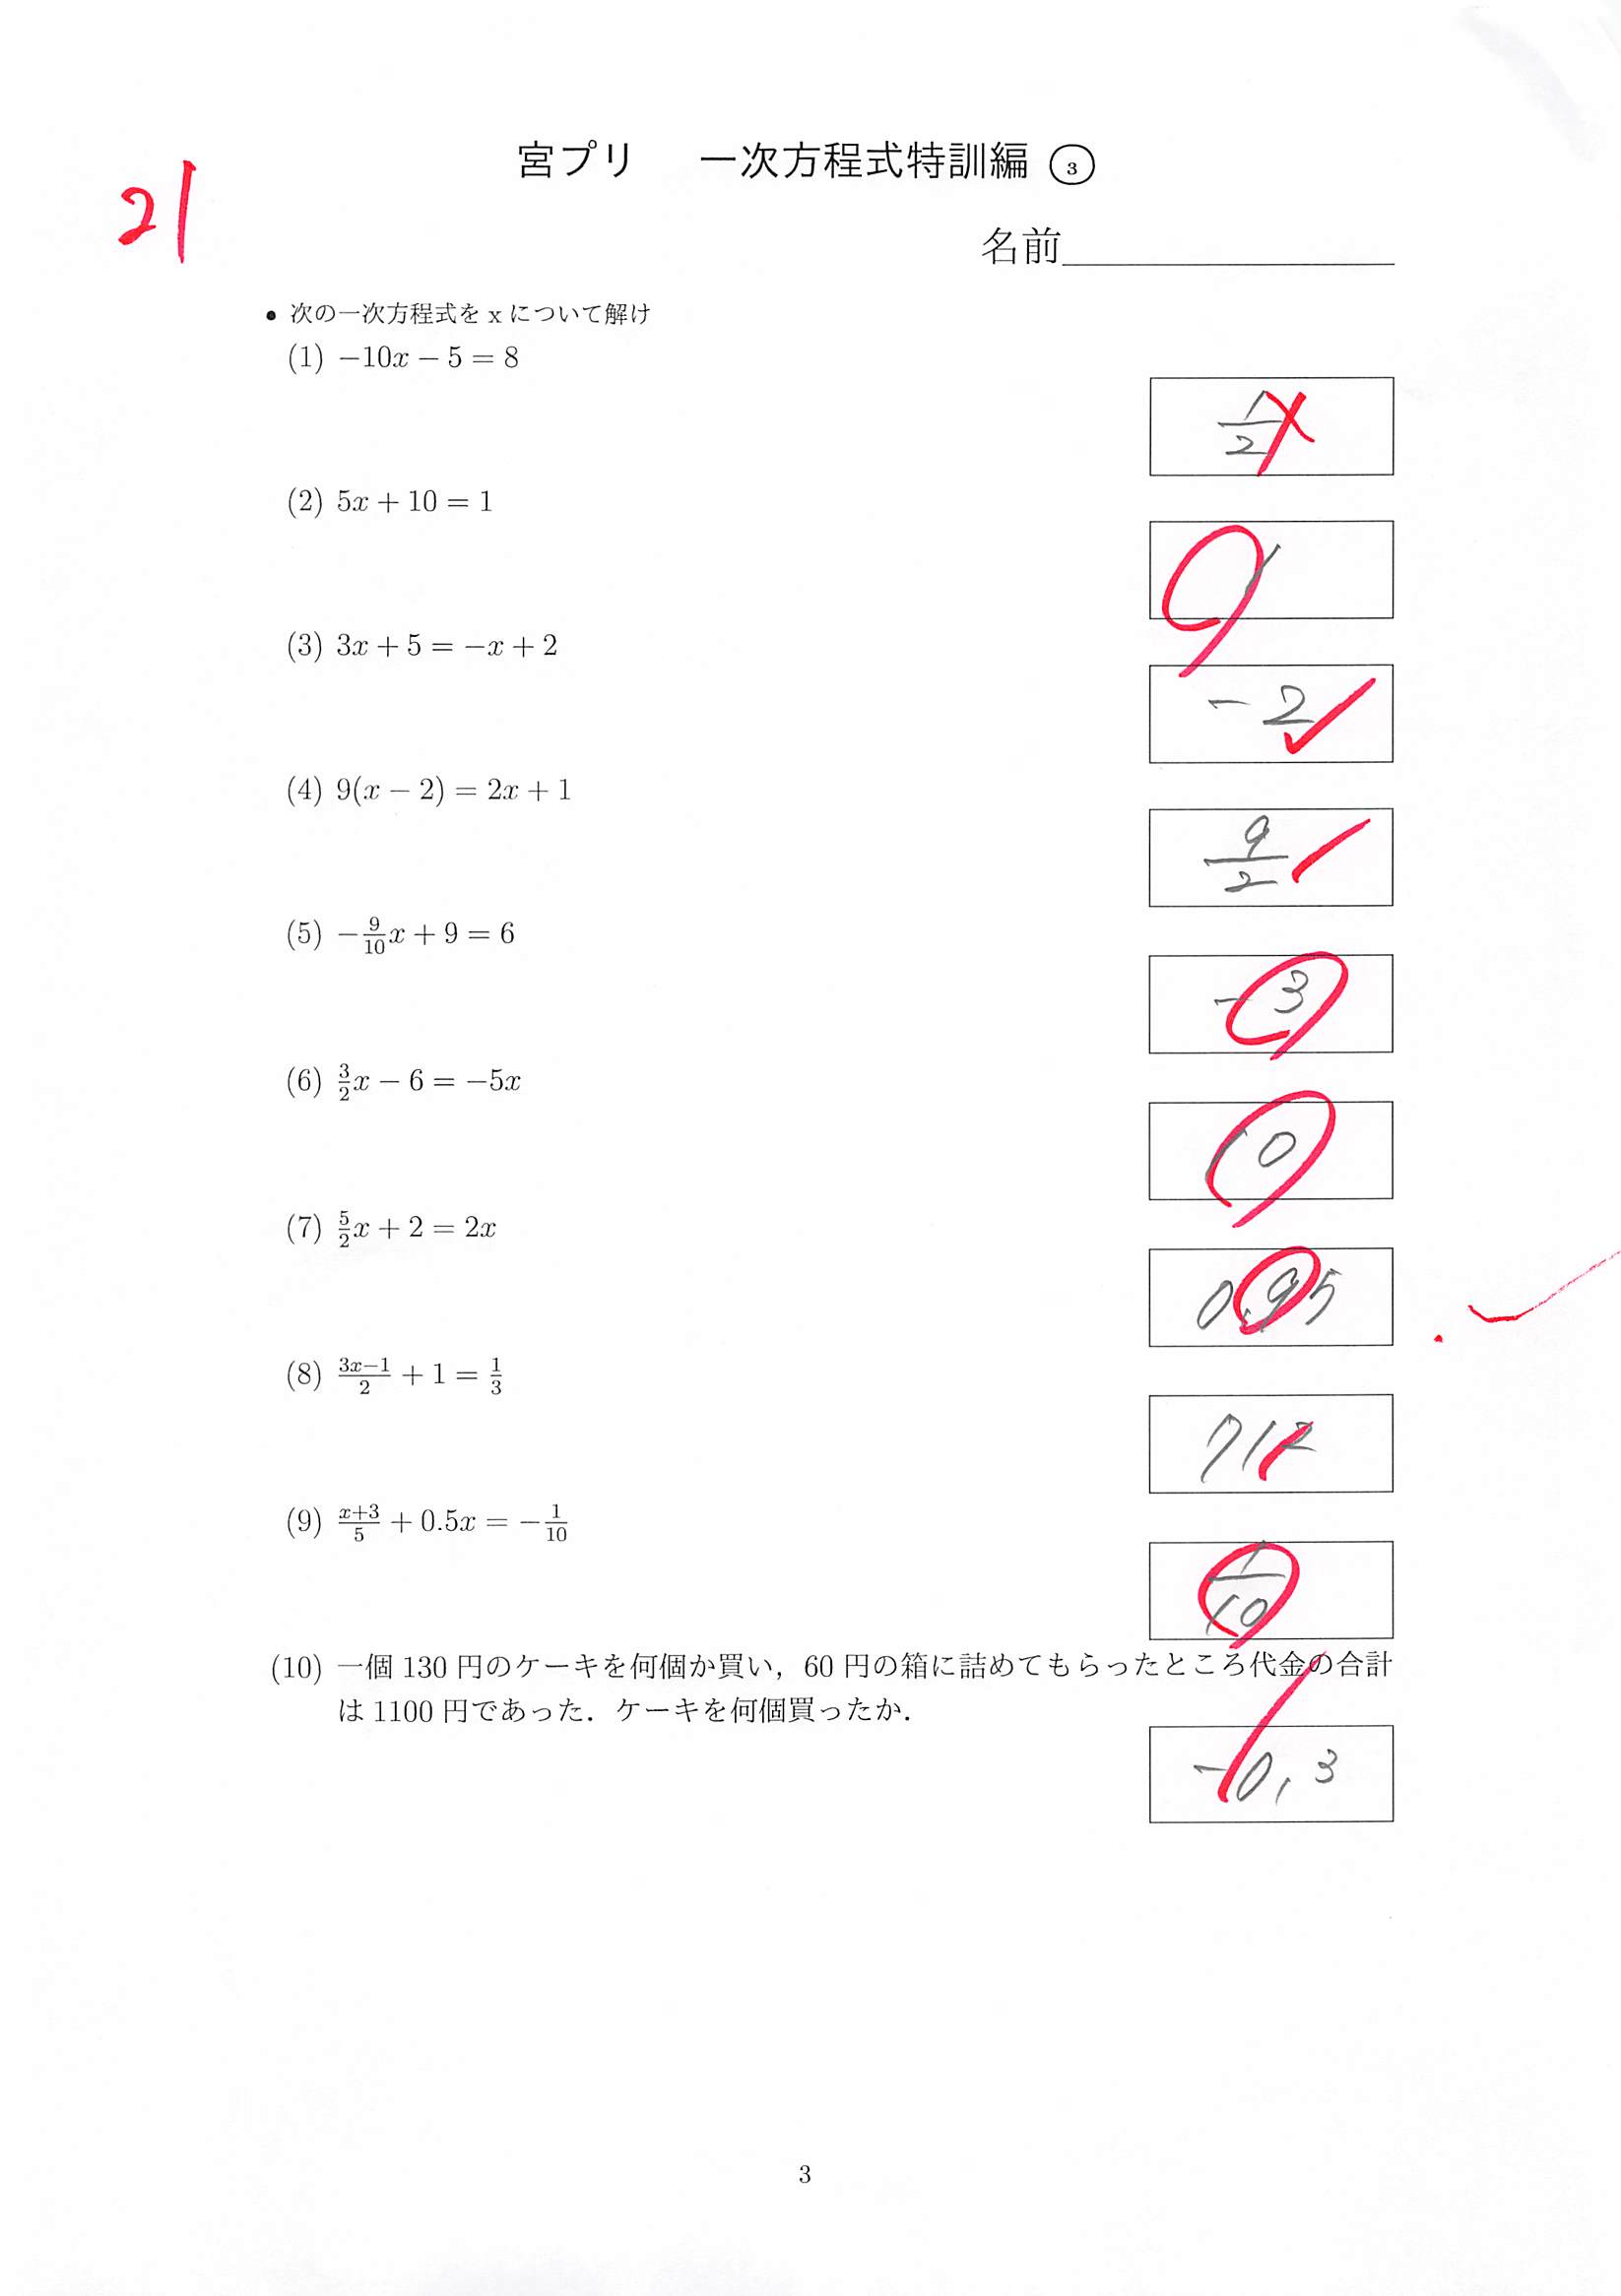 宮プリ 一次方程式特訓編 ③
21
名前
• 次の一次方程式を x について解け
(1) −10x − 5 = 8
1/2
(2) 5x + 10 = 1
1
(3) 3x + 5 = −x + 2
−2
(4) 9(x − 2) = 2x + 1
9/2
(5) −9/10x + 9 = 6
−3
(6) 3/2x − 6 = −5x
10
(7) 5/2x + 2 = 2x
0.95
(8) (3x−1)/2 + 1 = 1/3
712
(9) (x+3)/5 + 0.5x = −1/10
1/10
(10) 一個 130 円のケーキを何個か買い，60 円の箱に詰めてもらったところ代金の合計
は 1100 円であった．ケーキを何個買ったか．
−0,3
3